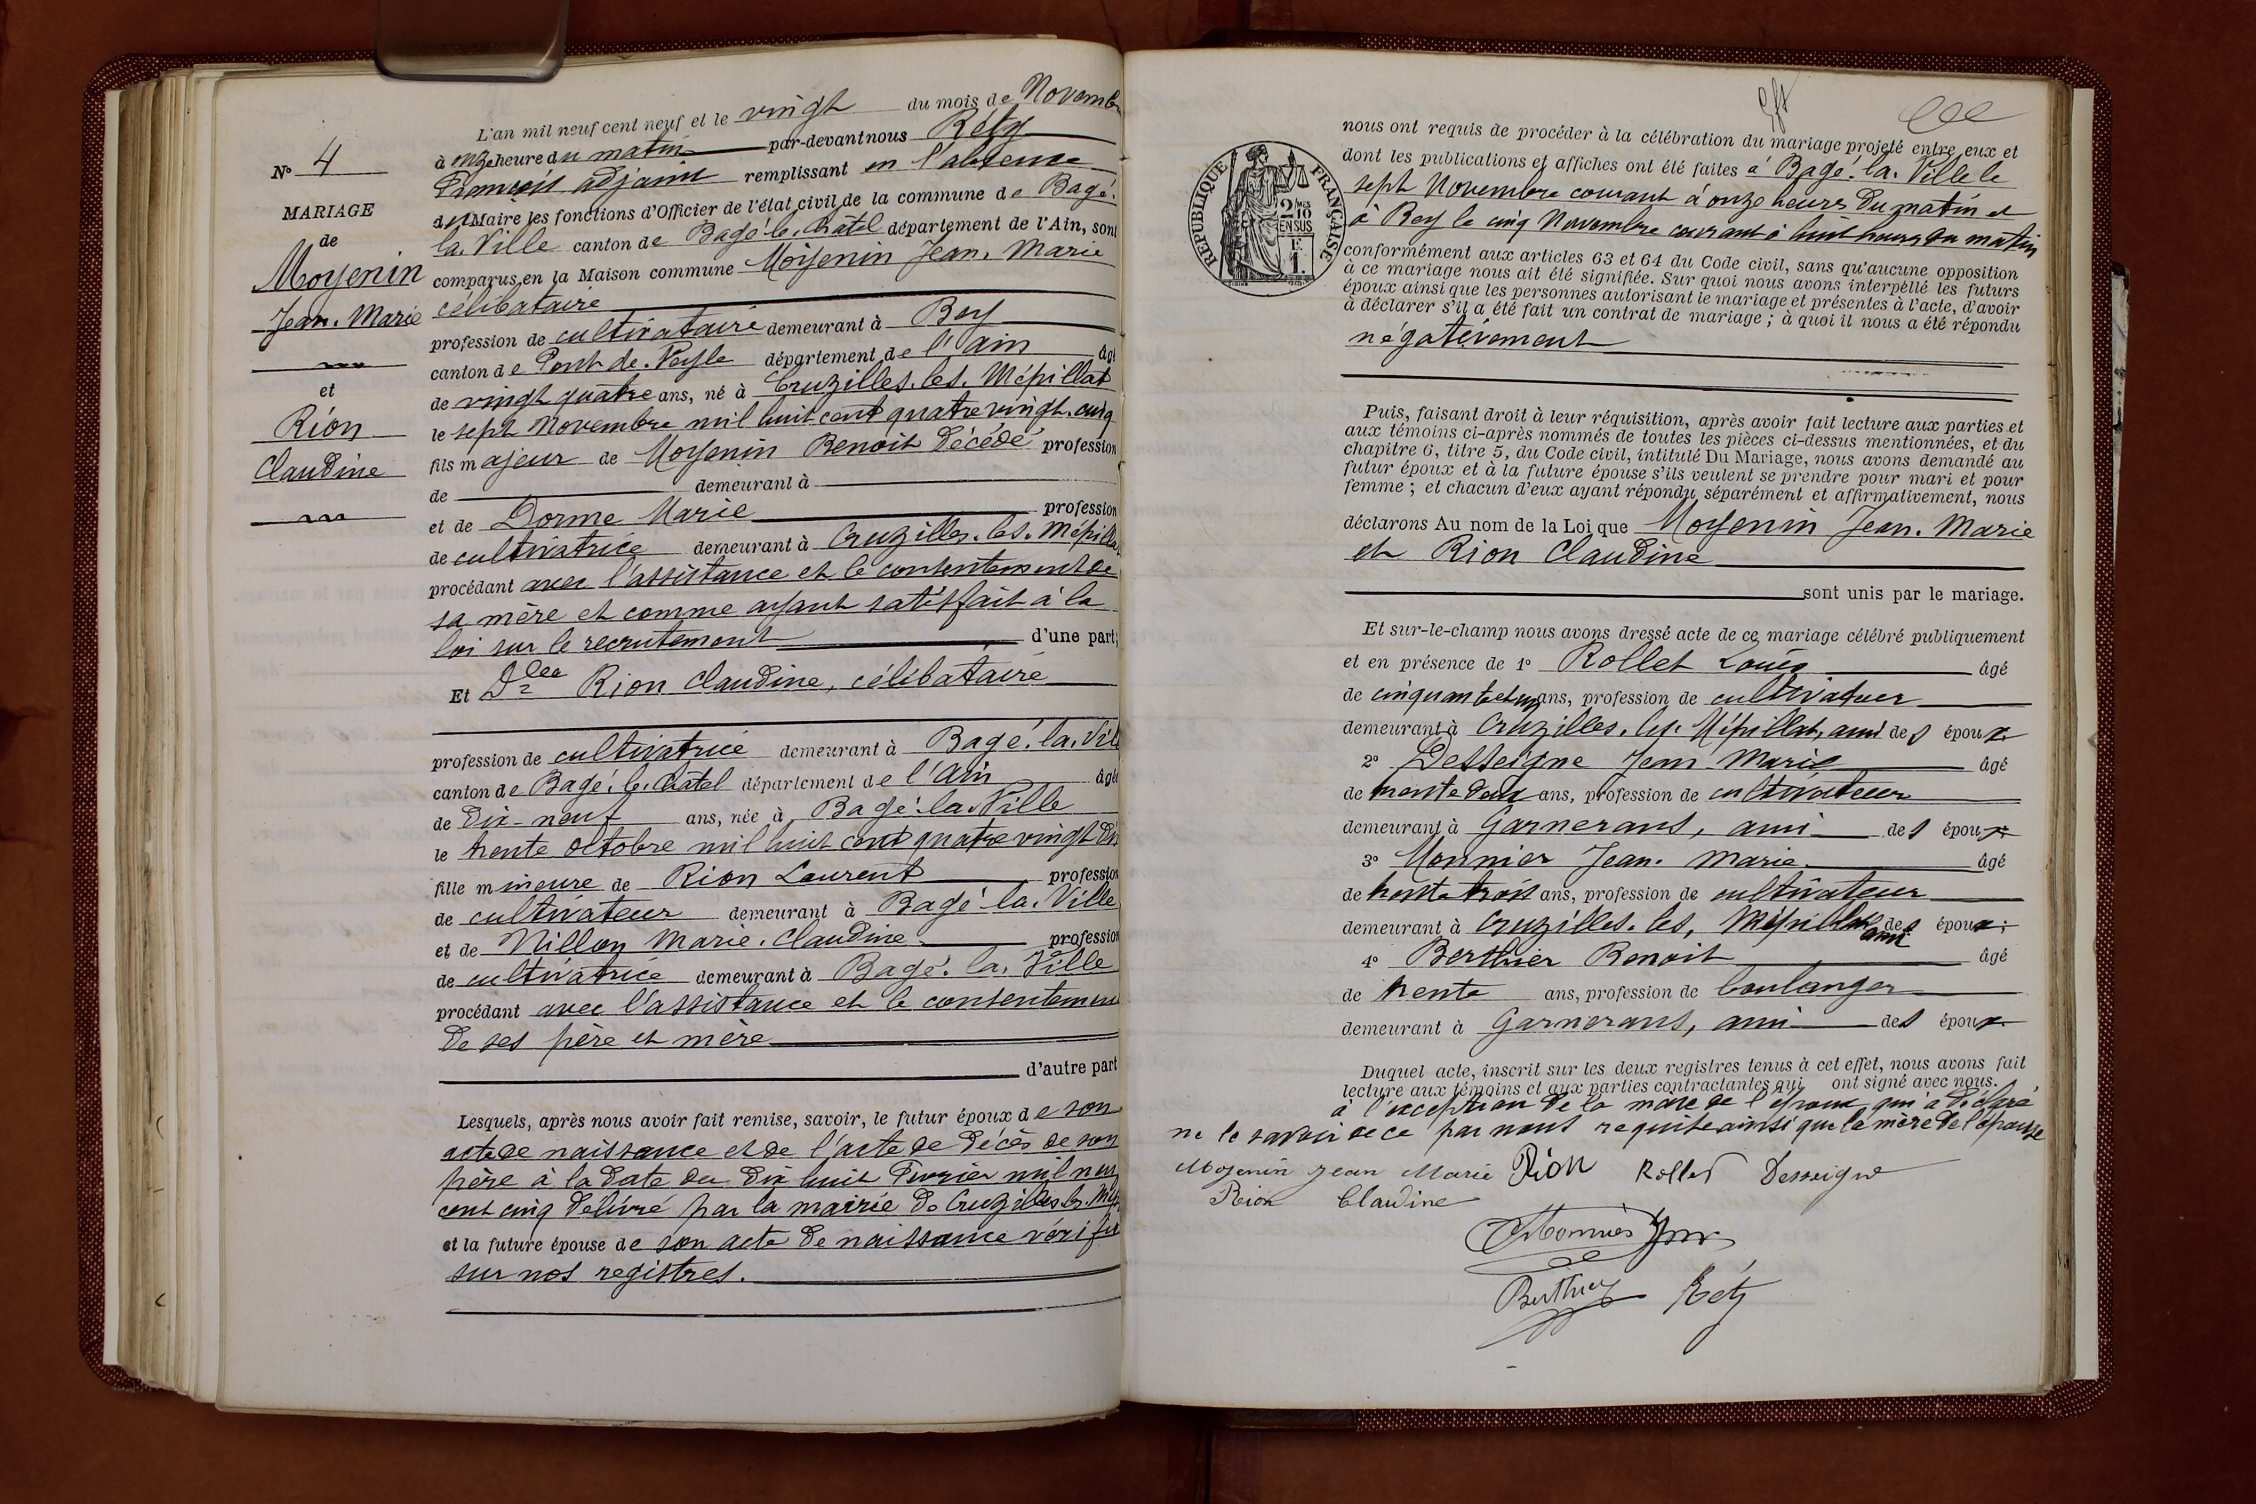 N° 4
MARIAGE
de
Moyenin
Jean. Marie
et
Rion
Claudine
L'an mil neuf cent neuf et le vingt du mois de Novembre
à onze heure du matin par-devant nous Réty
François adjoint remplissant en l'absence
du Maire les fonctions d'Officier de l'état civil de la commune de Bagé.
la. Ville canton de Bagé. le. Chatel département de l'Ain, sont
comparus en la Maison commune Moyenin Jean. Marie
célibataire
profession de cultivataire demeurant à Bey
canton de Pont. de. Veyle département de l'Ain âgé
de vingt quatre ans, né à Cruzilles. les. Mépillat
le sept Novembre mil huit cent quatre vingt. cinq
fils majeur de Moyenin Benoit décédé profession
de demeurant à
et de Dorme Marie profession
de cultivatrice demeurant à Cruzilles. les. Mépilla
procédant avec l'assistance et le consentement de
sa mère et comme ayant satisfait à la
loi sur le recrutement d'une part;
Et Dlle Rion Claudine, célibataire
profession de cultivatrice demeurant à Bagé. la. Vill
canton de Bagé. le. Chatel département de l'Ain âgé
de dix-neuf ans, née à Bagé. la. Ville
le trente octobre mil huit cent quatre vingt dix
fille mineure de Rion Laurent profession
de cultivateur demeurant à Bagé. la. Ville
et de Nillon Marie. Claudine profession
de cultivatrice demeurant à Bagé. la. Ville
procédant avec l'assistance et le consentemen
de ses père et mère
d'autre part
Lesquels, après nous avoir fait remise, savoir, le futur époux de son
acte de naissance et de l'acte de décès de son
père à la date du dix huit Février mil neuf
cent cinq délivré par la mairie de Cruzilles. les. Mép
et la future épouse de son acte de naissance vérifié
sur nos registres.
RÉPUBLIQUE FRANÇAISE
2/10 EN SUS
1 F.
nous ont requis de procéder à la célébration du mariage projeté entre eux et
dont les publications et affiches ont été faites à Bagé. la. Ville le
sept Novembre courant à onze heures du matin et
à Bey le cinq Novembre courant à huit heures du matin
conformément aux articles 63 et 64 du Code civil, sans qu'aucune opposition
à ce mariage nous ait été signifiée. Sur quoi nous avons interpéllé les futurs
époux ainsi que les personnes autorisant le mariage et présentes à l'acte, d'avoir
à déclarer s'il a été fait un contrat de mariage ; à quoi il nous a été répondu
négativement
Puis, faisant droit à leur réquisition, après avoir fait lecture aux parties et
aux témoins ci-après nommés de toutes les pièces ci-dessus mentionnées, et du
chapitre 6, titre 5, du Code civil, intitulé Du Mariage, nous avons demandé au
futur époux et à la future épouse s'ils veulent se prendre pour mari et pour
femme ; et chacun d'eux ayant répondu séparément et affirmativement, nous
déclarons Au nom de la Loi que Moyenin Jean. Marie
et Rion Claudine
sont unis par le mariage.
Et sur-le-champ nous avons dressé acte de ce mariage célébré publiquement
et en présence de 1° Rollet Louis âgé
de cinquante et un ans, profession de cultivateur
demeurant à Cruzilles. les. Mépillat, ami des époux
2° Desseigne Jean Marie âgé
de trente deux ans, profession de cultivateur
demeurant à Garnerans, ami des époux
3° Monnier Jean. Marie. âgé
de trente trois ans, profession de cultivateur
demeurant à Cruzilles. les, Mépillat ami des époux ;
4° Berthier Benoit âgé
de trente ans, profession de boulanger
demeurant à Garnerans, ami des époux
Duquel acte, inscrit sur les deux registres tenus à cet effet, nous avons fait
lecture aux témoins et aux parties contractantes qui ont signé avec nous.
à l'exception de la mère de l'époux qui a déclaré
ne le savoir de ce par nous requise ainsi que la mère de l'épouse
Moyenin Jean Marie Rion Rollet Desseigne
Rion Claudine
Monnier
Berthier Réty